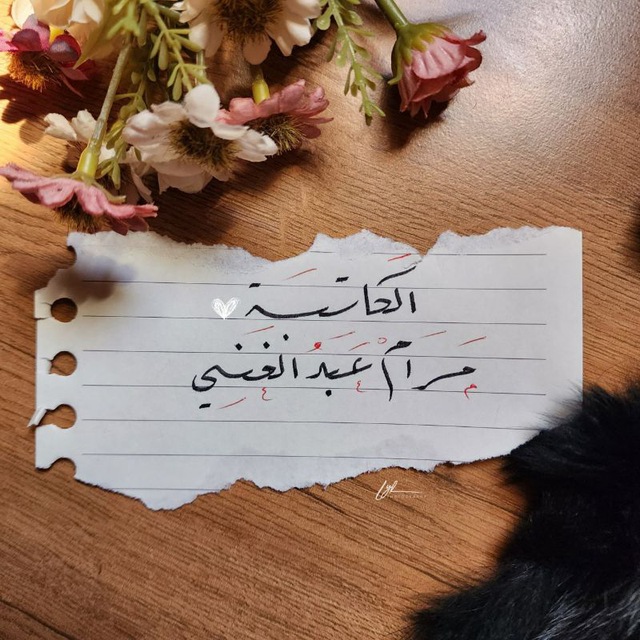 الكاتبة
مَرَام عَبدُ الغَنِي